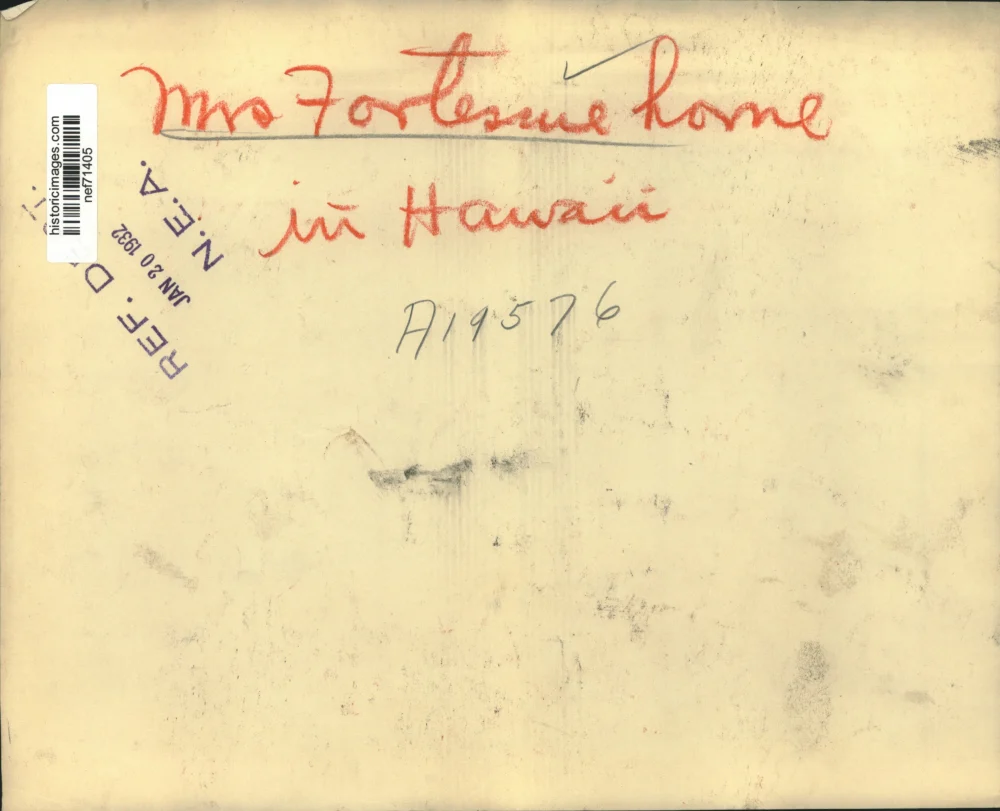 Mrs Fortescue home
in Hawaii
A19576
historicimages.com
nef71405
REF. D
JAN 20 1932
N.E.A.